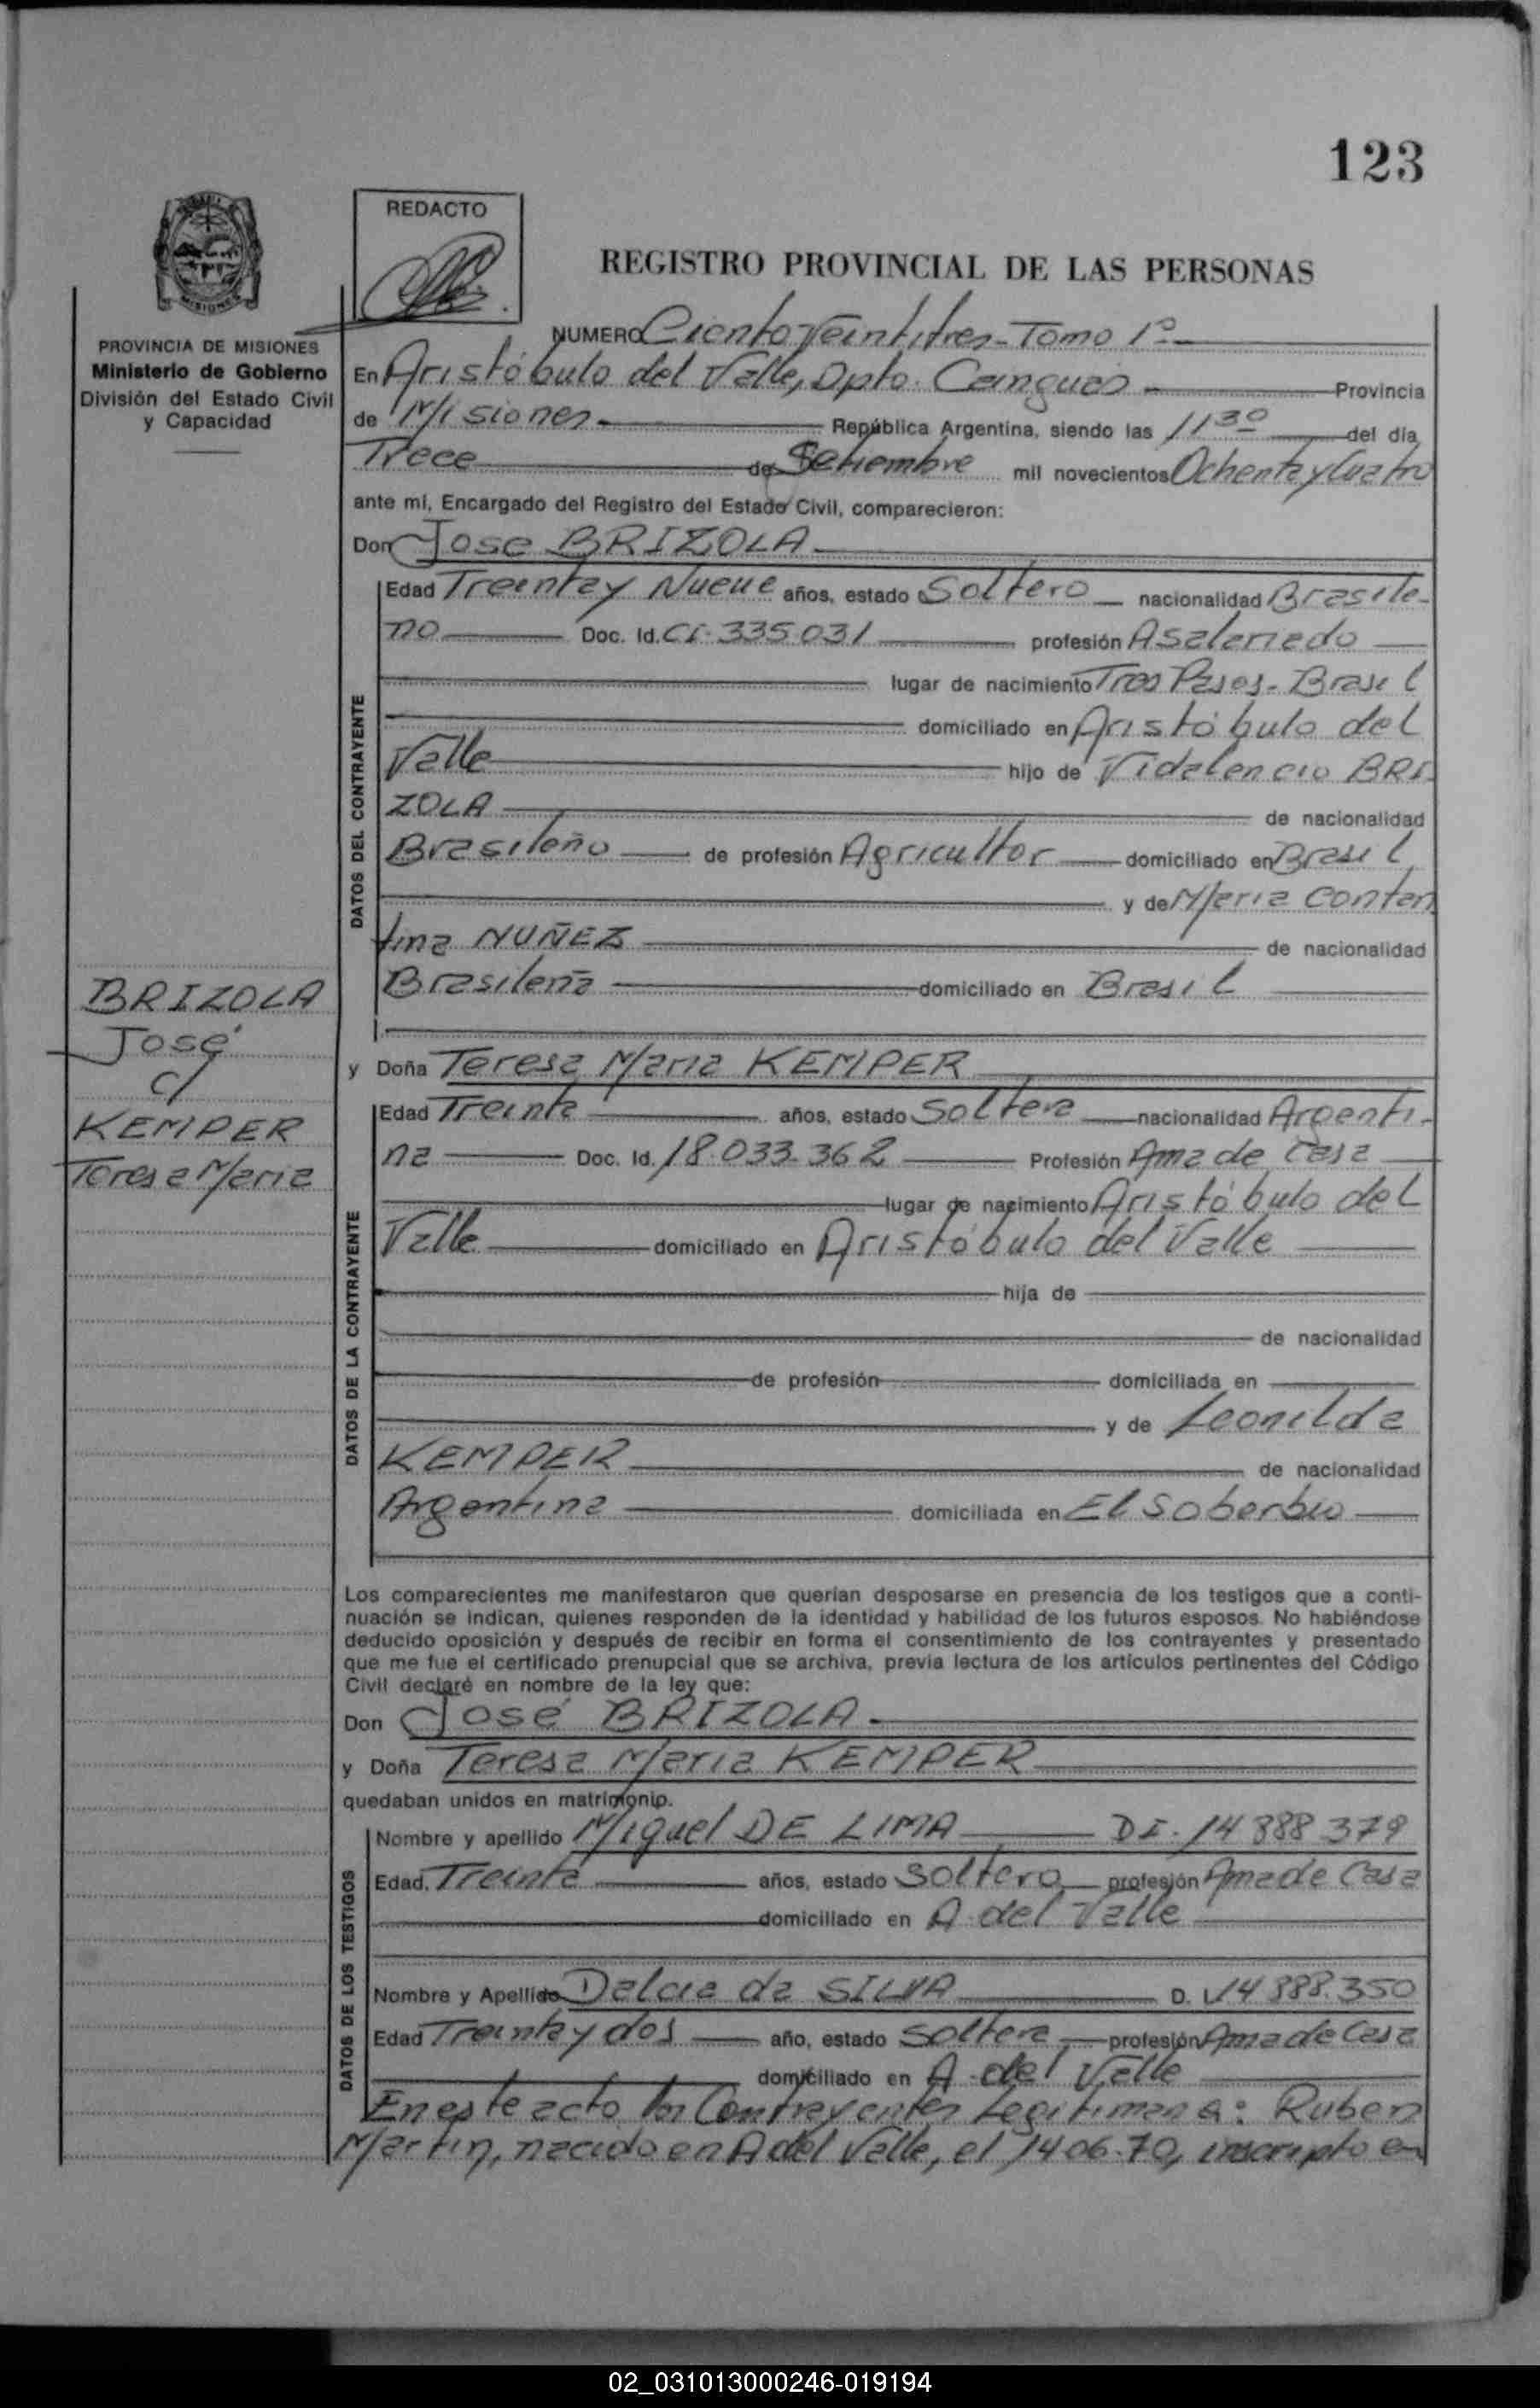 123
REDACTO
REGISTRO PROVINCIAL DE LAS PERSONAS
MISIONES
PROVINCIA DE MISIONES
Ministerio de Gobierno
División del Estado Civil
y Capacidad
NUMERO Ciento Veintitres - Tomo 1º
En Aristóbulo del Valle, Dpto. Cainguás Provincia
de Misiones República Argentina, siendo las 11 30 del día
Trece de Setiembre mil novecientos Ochenta y Cuatro
ante mí, Encargado del Registro del Estado Civil, comparecieron:
Don Jose BRIZOLA
DATOS DEL CONTRAYENTE
Edad Treinta y Nueve años, estado Soltero nacionalidad Brasile-
no Doc. Id. CI. 335.031 profesión Asalariado
lugar de nacimiento Tres Pasos - Brasil
domiciliado en Aristóbulo del
Valle hijo de Vidalencio BRI
ZOLA de nacionalidad
Brasileño de profesión Agricultor domiciliado en Brasil
y de Maria Contan
tina NUÑEZ de nacionalidad
Brasileña domiciliado en Brasil
BRIZOLA
José
c/
KEMPER
Teresa Maria
y Doña Teresa Maria KEMPER
DATOS DE LA CONTRAYENTE
Edad Treinta años, estado Soltera nacionalidad Argenti-
na Doc. Id. 18.033.362 Profesión Ama de casa
lugar de nacimiento Aristóbulo del
Valle domiciliado en Aristóbulo del Valle
hija de
de nacionalidad
de profesión domiciliada en
y de Leonilda
KEMPER de nacionalidad
Argentina domiciliada en El Soberbio
Los comparecientes me manifestaron que querían desposarse en presencia de los testigos que a conti-
nuación se indican, quienes responden de la identidad y habilidad de los futuros esposos. No habiéndose
deducido oposición y después de recibir en forma el consentimiento de los contrayentes y presentado
que me fue el certificado prenupcial que se archiva, previa lectura de los artículos pertinentes del Código
Civil declaré en nombre de la ley que:
Don José BRIZOLA
y Doña Teresa Maria KEMPER
quedaban unidos en matrimonio.
DATOS DE LOS TESTIGOS
Nombre y apellido Miguel DE LIMA DI. 14 888 379
Edad. Treinta años, estado Soltero profesión Ama de Casa
domiciliado en A. del Valle
Nombre y Apellido Delcia da SILVA D. I. 14 888.350
Edad Treinta y dos año, estado Soltera profesión Ama de Casa
domiciliado en A. del Valle
En este acto los Contrayentes Legitiman a: Ruben
Martin, nacido en A del Valle, el 14.06.70, inscripto en
02_031013000246-019194